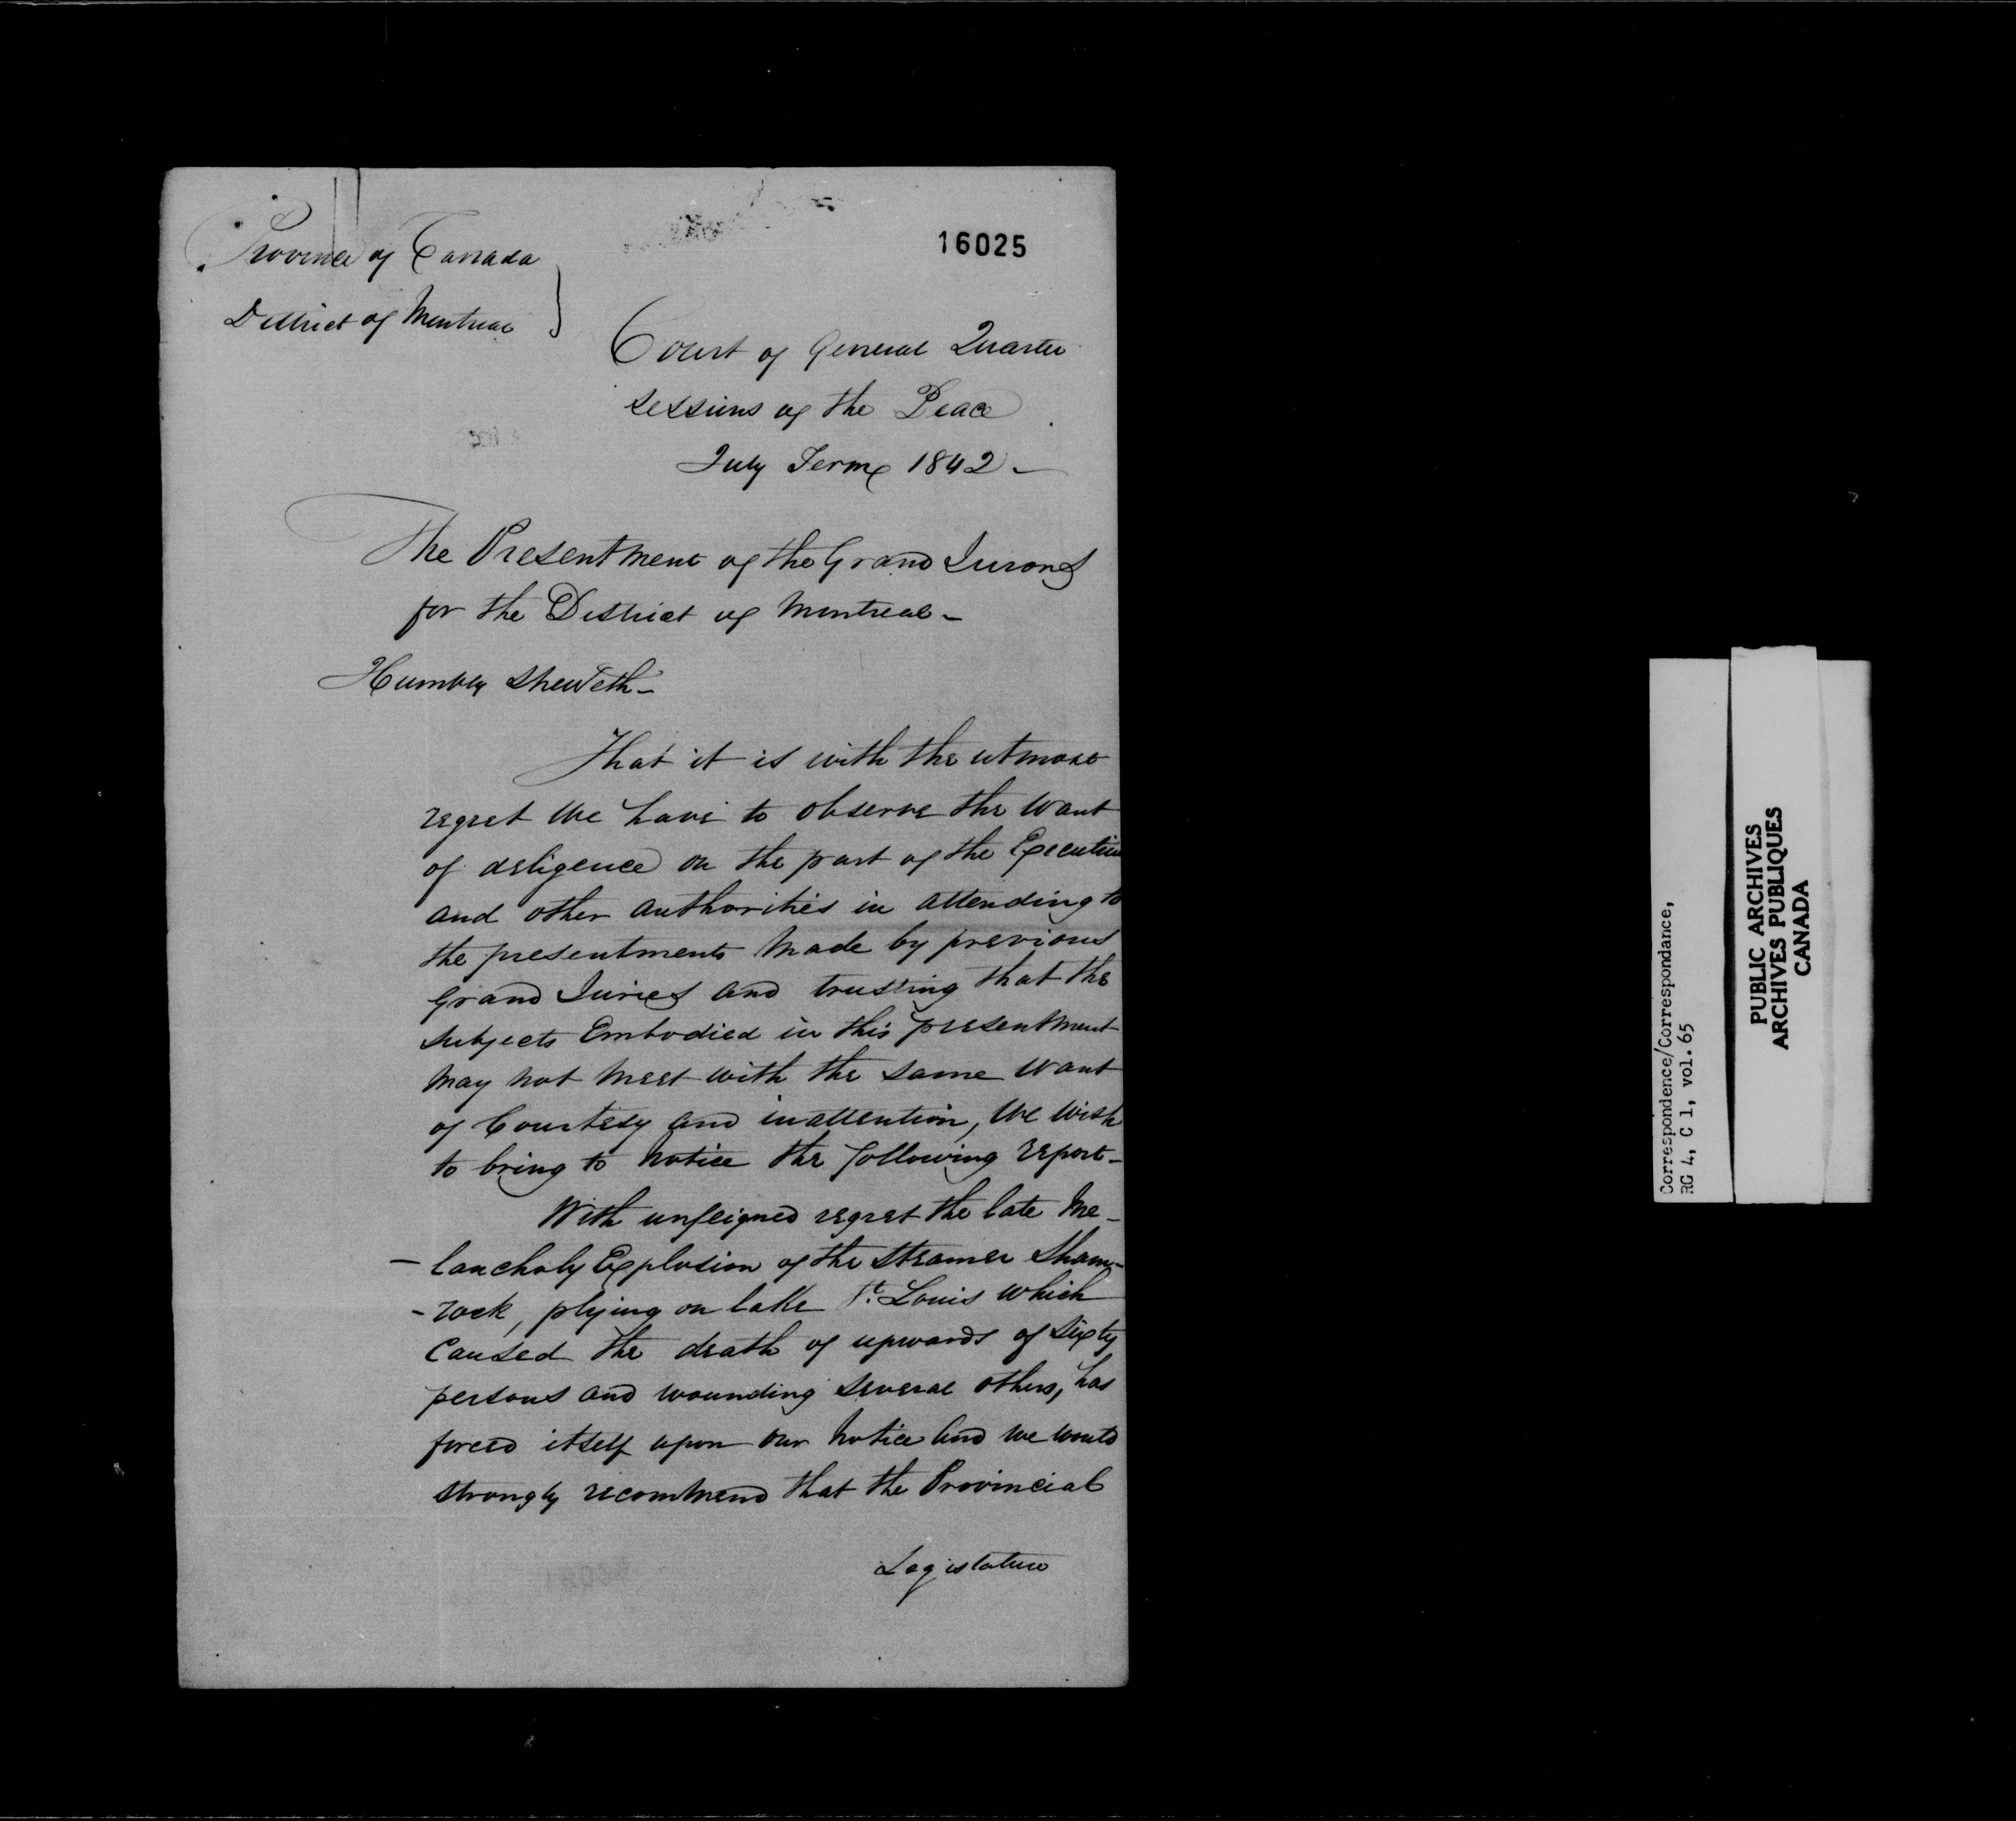 16025
Province of Canada
District of Montreal
Court of General Quarter
Sessions of the Peace
July Term 1842 -
The Presentment of the Grand Jurors
for the District of Montreal -
Humbly Sheweth -
That it is with the utmost
regret we have to observe the want
of deligence on the part of the Executive
and other authorities in attending to
the presentments made by previous
Grand Juries and trusting that the
subjects Embodied in this presentment
may not meet with the same want
of Courtesy and inattention, we wish
to bring to notice the following report -
With unfeigned regret the late Me-
- lancholy Explosion of the Steamer Sham-
- rock, plying on lake St. Louis which
caused the death of upwards of sixty
persons and wounding several others, has
forced itself upon our notice and we would
strongly recommend that the Provincial
Legislature
Correspondence/Correspondance,
RG 4, C 1, vol. 65
PUBLIC ARCHIVES
ARCHIVES PUBLIQUES
CANADA